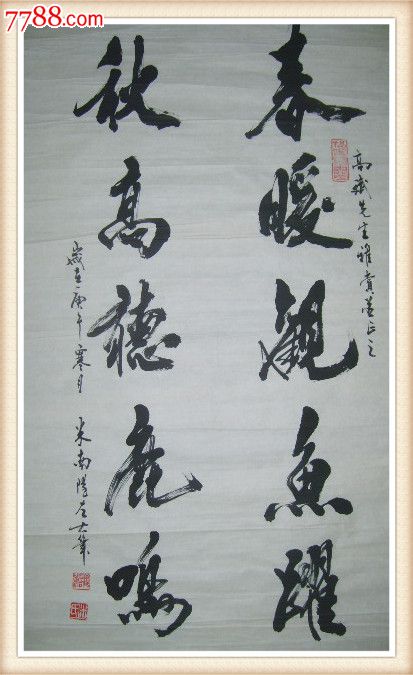 7788.com
春暖觀魚躍
高斌先生雅賞並正之
秋高聽鹿鳴
歲在庚午寒月 米南陽左大筆